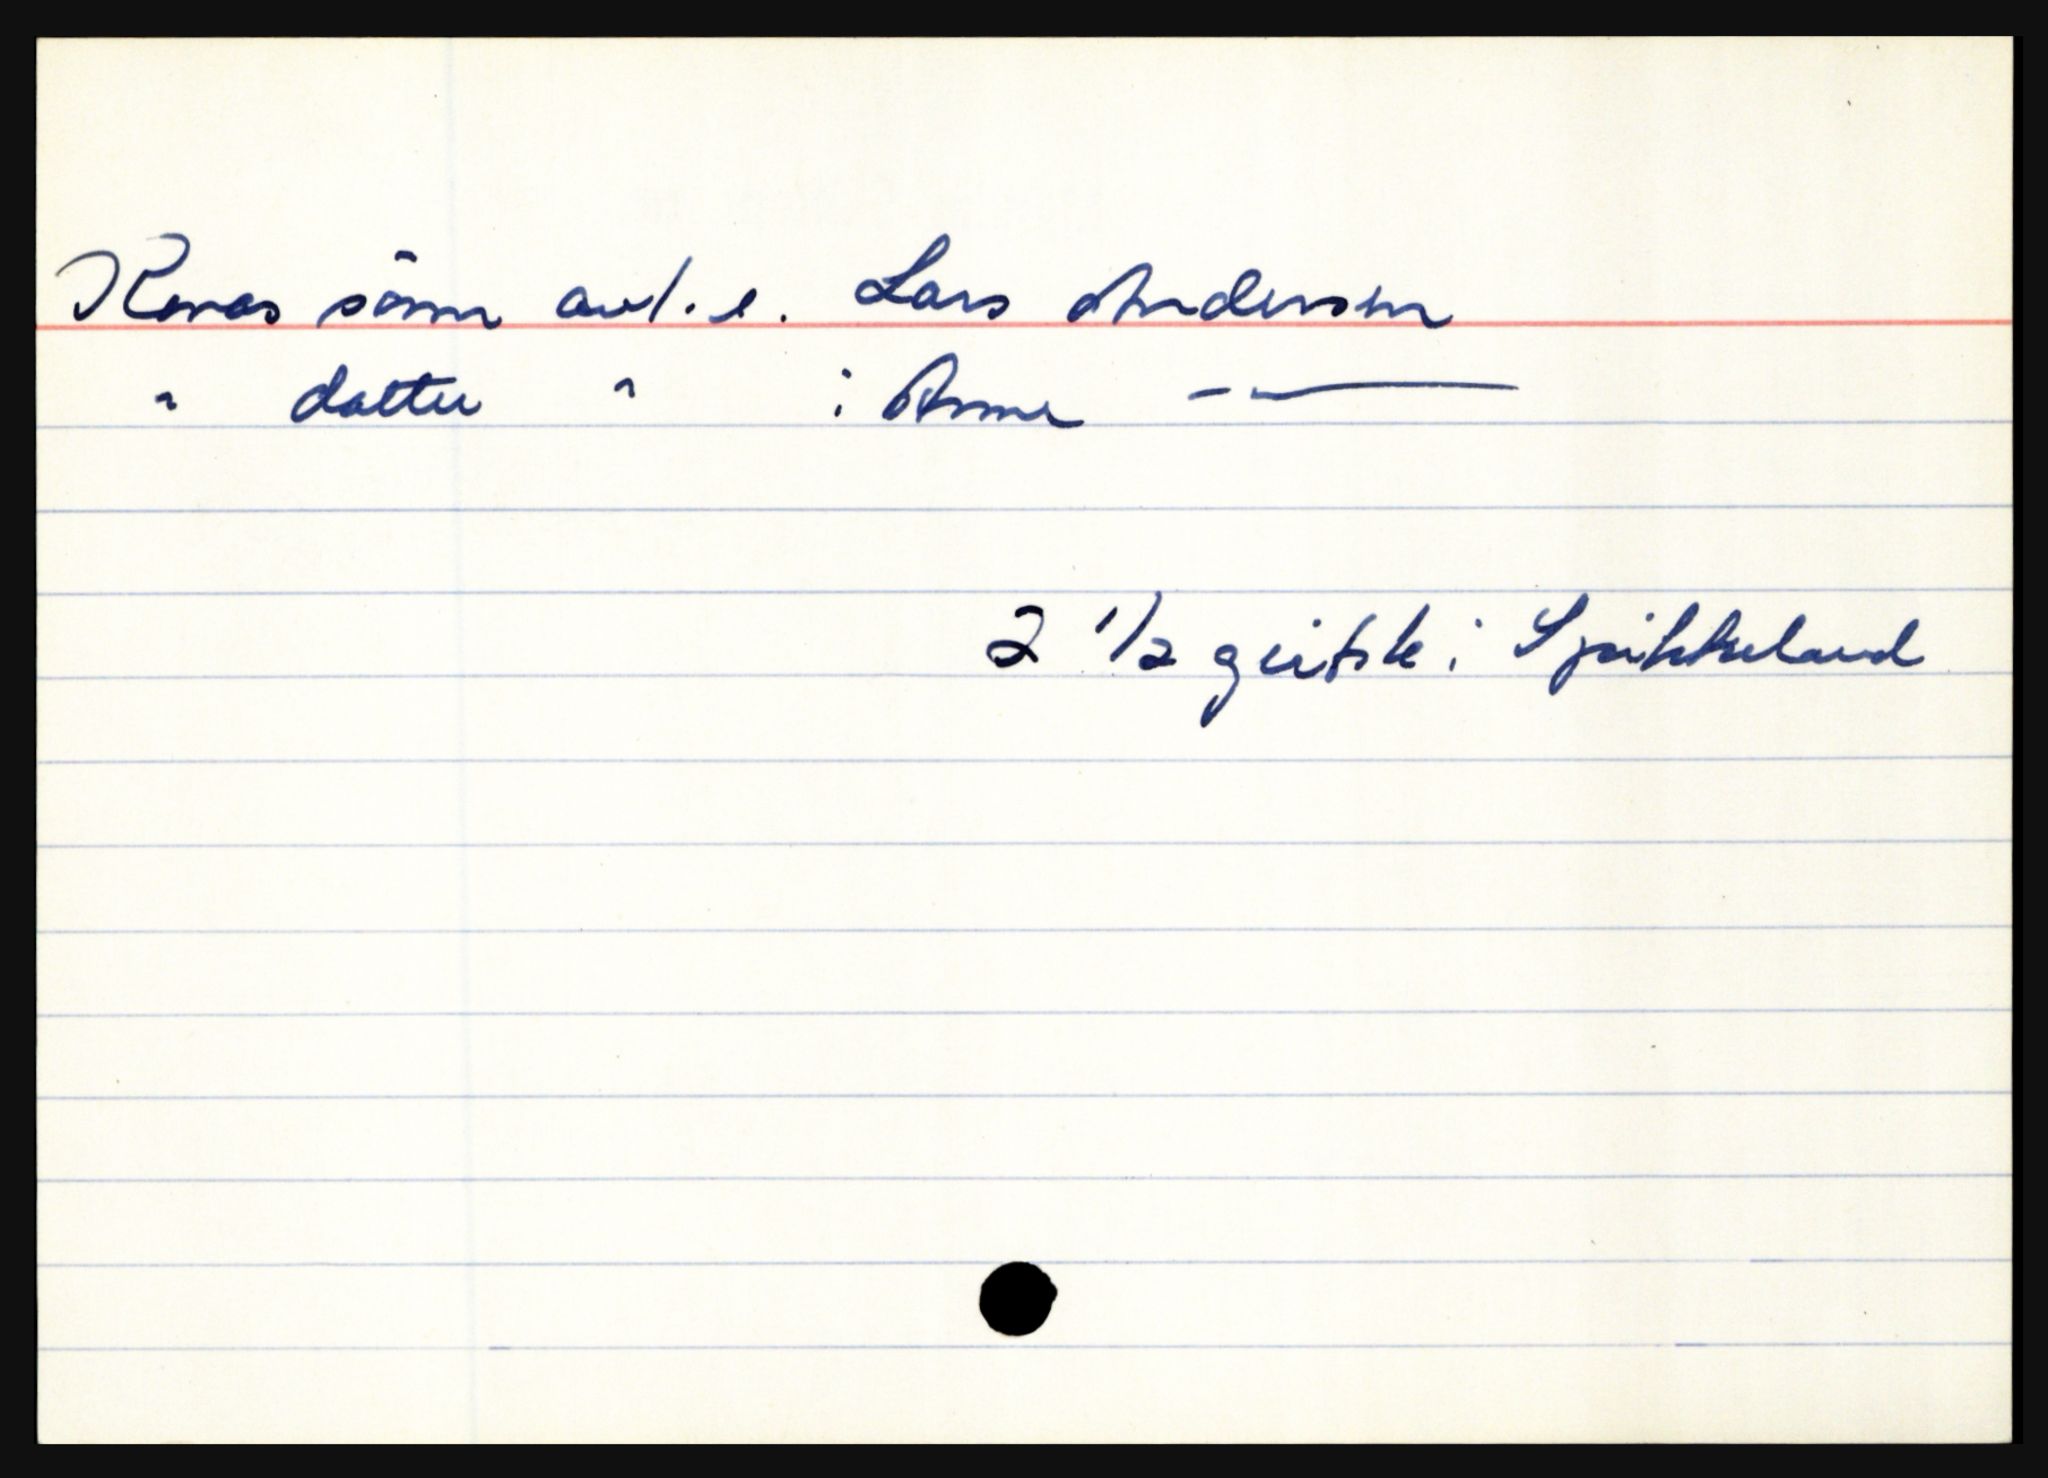 Konas sönn avl. e. Lars Andersen
" datter " : Anne - —
2 1/2 geitsk i Spikkeland